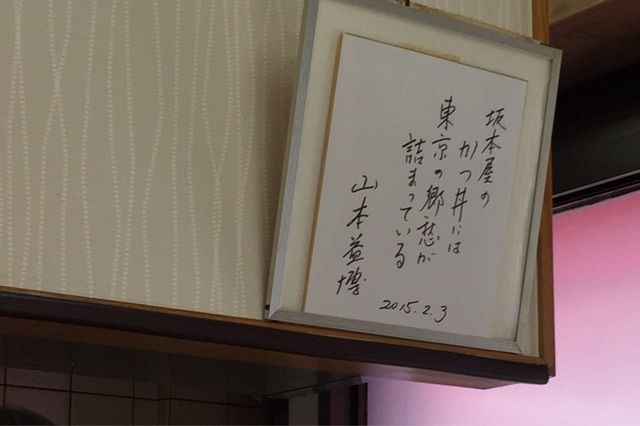 坂本屋の
かつ丼には
東京の郷愁が
詰まっている
山本益博
2015.2.3